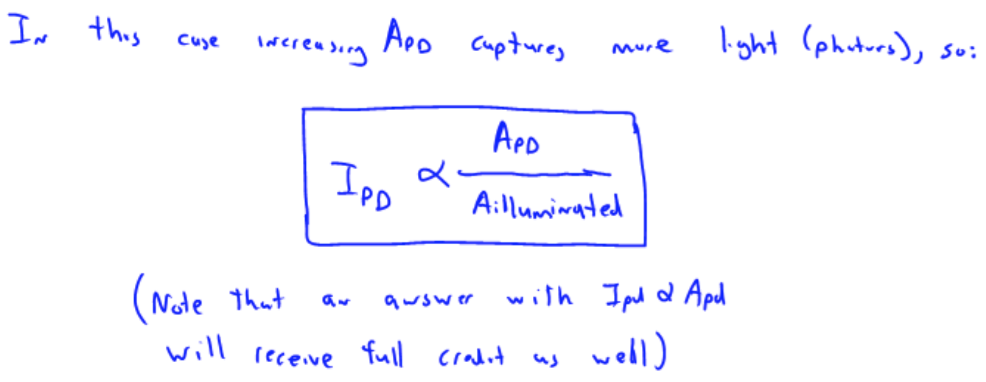 In this case increasing APD captures more light (photons), so:
IPD ∝ APD
Ailluminated
(Note that an answer with Ipd ∝ Apd
will receive full credit as well)